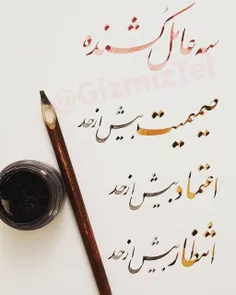 سه عامل کشنده
@GizmizTel
صمیمیت بیش از حد
اعتماد بیش از حد
انتظار بیش از حد